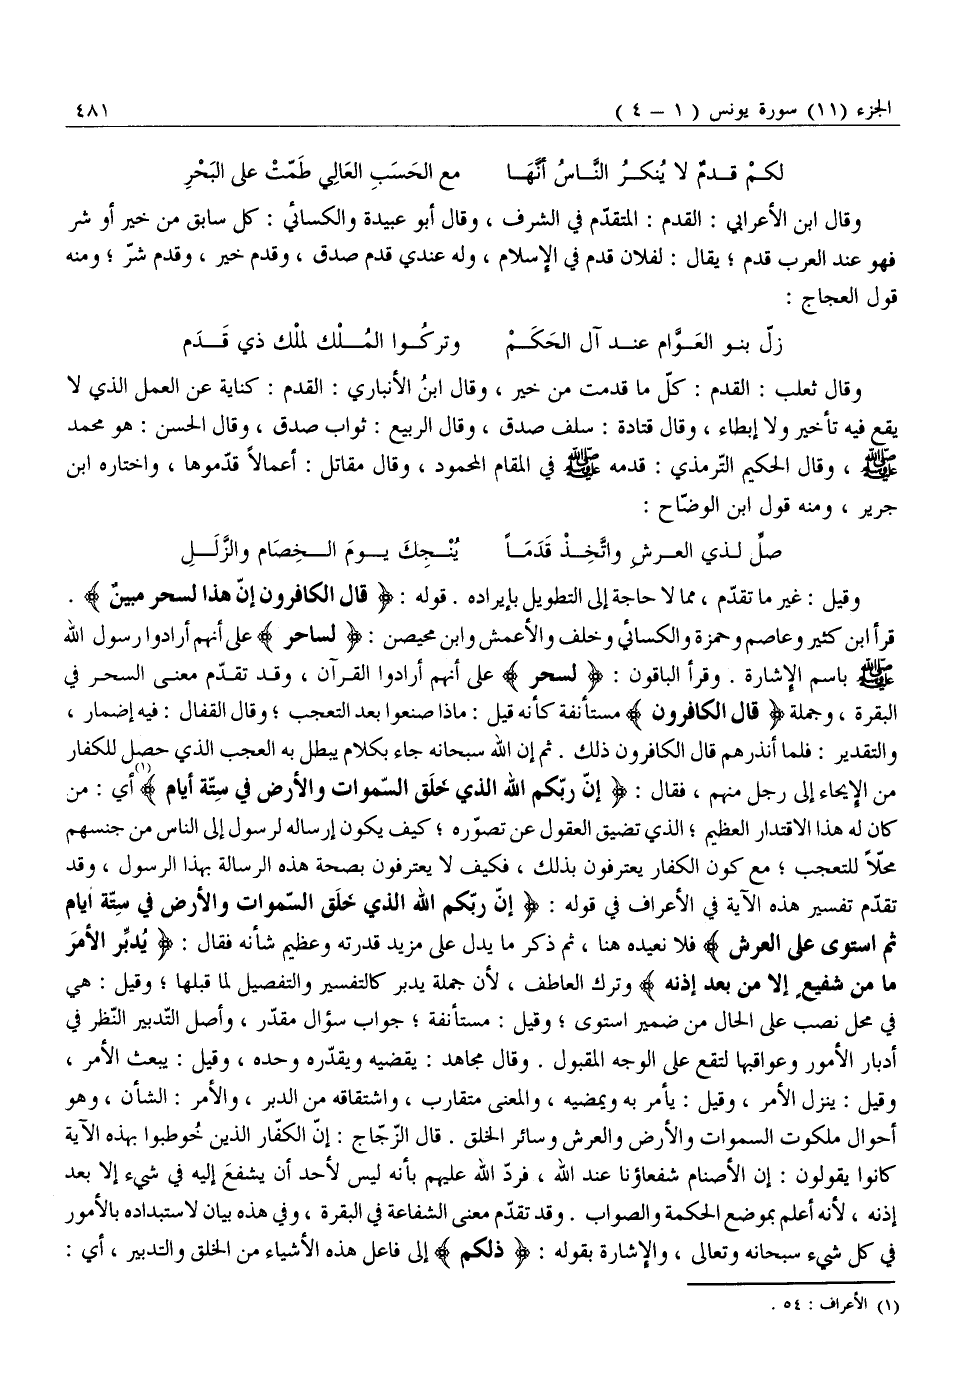 الجزء (١١) سورة يونس ( ١ – ٤ ) ٤٨١
لكمْ قـدمٌ لا يُنكـرُ النَّاسُ أنَّهَـا مع الحَسَبِ العَالِي طَمّتْ على البَحْرِ
وقال ابن الأعرابي : القدم : المتقدّم في الشرف ، وقال أبو عبيدة والكسائي : كل سابق من خير أو شر
فهو عند العرب قدم ؛ يقال : لفلان قدم في الإسلام ، وله عندي قدم صدق ، وقدم خير ، وقدم شرّ ؛ ومنه
قول العجاج :
زلّ بنو العَوَّام عنـد آل الحَكَـمْ وتركُـوا المُـلْك لملْك ذي قَـدَم
وقال ثعلب : القدم : كلّ ما قدمت من خير ، وقال ابنُ الأنباري : القدم : كناية عن العمل الذي لا
يقع فيه تأخير ولا إبطاء ، وقال قتادة : سلف صدق ، وقال الربيع : ثواب صدق ، وقال الحسن : هو محمد
ﷺ ، وقال الحكيم التّرمذي : قدمه ﷺ في المقام المحمود ، وقال مقاتل : أعمالاً قدّموها ، واختاره ابن
جرير ، ومنه قول ابن الوضّاح :
صلِّ لـذي العـرشِ واتَّخِـذْ قَدَمَـاً يُنْـجِكَ يـومَ الـخِصَام والزَّلَـلِ
وقيل : غير ما تقدّم ، مما لا حاجة إلى التطويل بإيراده . قوله : ﴿ قال الكافرون إنّ هذا لسحر مبينٌ ﴾ .
قرأ ابن كثير وعاصم وحمزة والكسائي وخلف والأعمش وابن محيصن : ﴿ لساحر ﴾ على أنهم أرادوا رسول الله
ﷺ باسم الإشارة . وقرأ الباقون : ﴿ لسحر ﴾ على أنهم أرادوا القرآن ، وقد تقدّم معنى السحر في
البقرة ، وجملة ﴿ قال الكافرون ﴾ مستأنفة كأنه قيل : ماذا صنعوا بعد التعجب ؛ وقال القفال : فيه إضمار ،
والتقدير : فلما أنذرهم قال الكافرون ذلك . ثم إن الله سبحانه جاء بكلام يبطل به العجب الذي حصل للكفار
من الإيحاء إلى رجل منهم ، فقال : ﴿ إنّ ربّكم الله الذي خلَق السّموات والأرض في سِتّة أيام ﴾(١) أي : من
كان له هذا الاقتدار العظيم ؛ الذي تضيق العقول عن تصوّره ؛ كيف يكون إرساله لرسول إلى الناس من جنسهم
محلّاً للتعجب ؛ مع كون الكفار يعترفون بذلك ، فكيف لا يعترفون بصحة هذه الرسالة بهذا الرسول ، وقد
تقدّم تفسير هذه الآية في الأعراف في قوله : ﴿ إنّ ربّكم الله الذي خلَق السّموات والأرض في سِتّة أيام
ثم استوى على العرش ﴾ فلا نعيده هنا ، ثم ذكر ما يدل على مزيد قدرته وعظيم شأنه فقال : ﴿ يُدبِّر الأمرَ
ما من شفيعٍ إلا من بعد إذنه ﴾ وترك العاطف ، لأن جملة يدبر كالتفسير والتفصيل لما قبلها ؛ وقيل : هي
في محل نصب على الحال من ضمير استوى ؛ وقيل : مستأنفة ؛ جواب سؤال مقدّر ، وأصل التّدبير النّظر في
أدبار الأمور وعواقبها لتقع على الوجه المقبول . وقال مجاهد : يقضيه ويقدّره وحده ، وقيل : يبعث الأمر ،
وقيل : ينزل الأمر ، وقيل : يأمر به ويمضيه ، والمعنى متقارب ، واشتقاقه من الدبر ، والأمر : الشأن ، وهو
أحوال ملكوت السموات والأرض والعرش وسائر الخلق . قال الزّجّاج : إنّ الكفّار الذين خُوطبوا بهذه الآية
كانوا يقولون : إن الأصنام شفعاؤنا عند الله ، فردّ الله عليهم بأنه ليس لأحد أن يشفعَ إليه في شيء إلا بعد
إذنه ، لأنه أعلم بموضع الحكمة والصواب . وقد تقدّم معنى الشفاعة في البقرة ، وفي هذه بيان لاستبداده بالأمور
في كل شيء سبحانه وتعالى ، والإشارة بقوله : ﴿ ذلكم ﴾ إلى فاعل هذه الأشياء من الخلق والتدبير ، أي :
(١) الأعراف : ٥٤ .